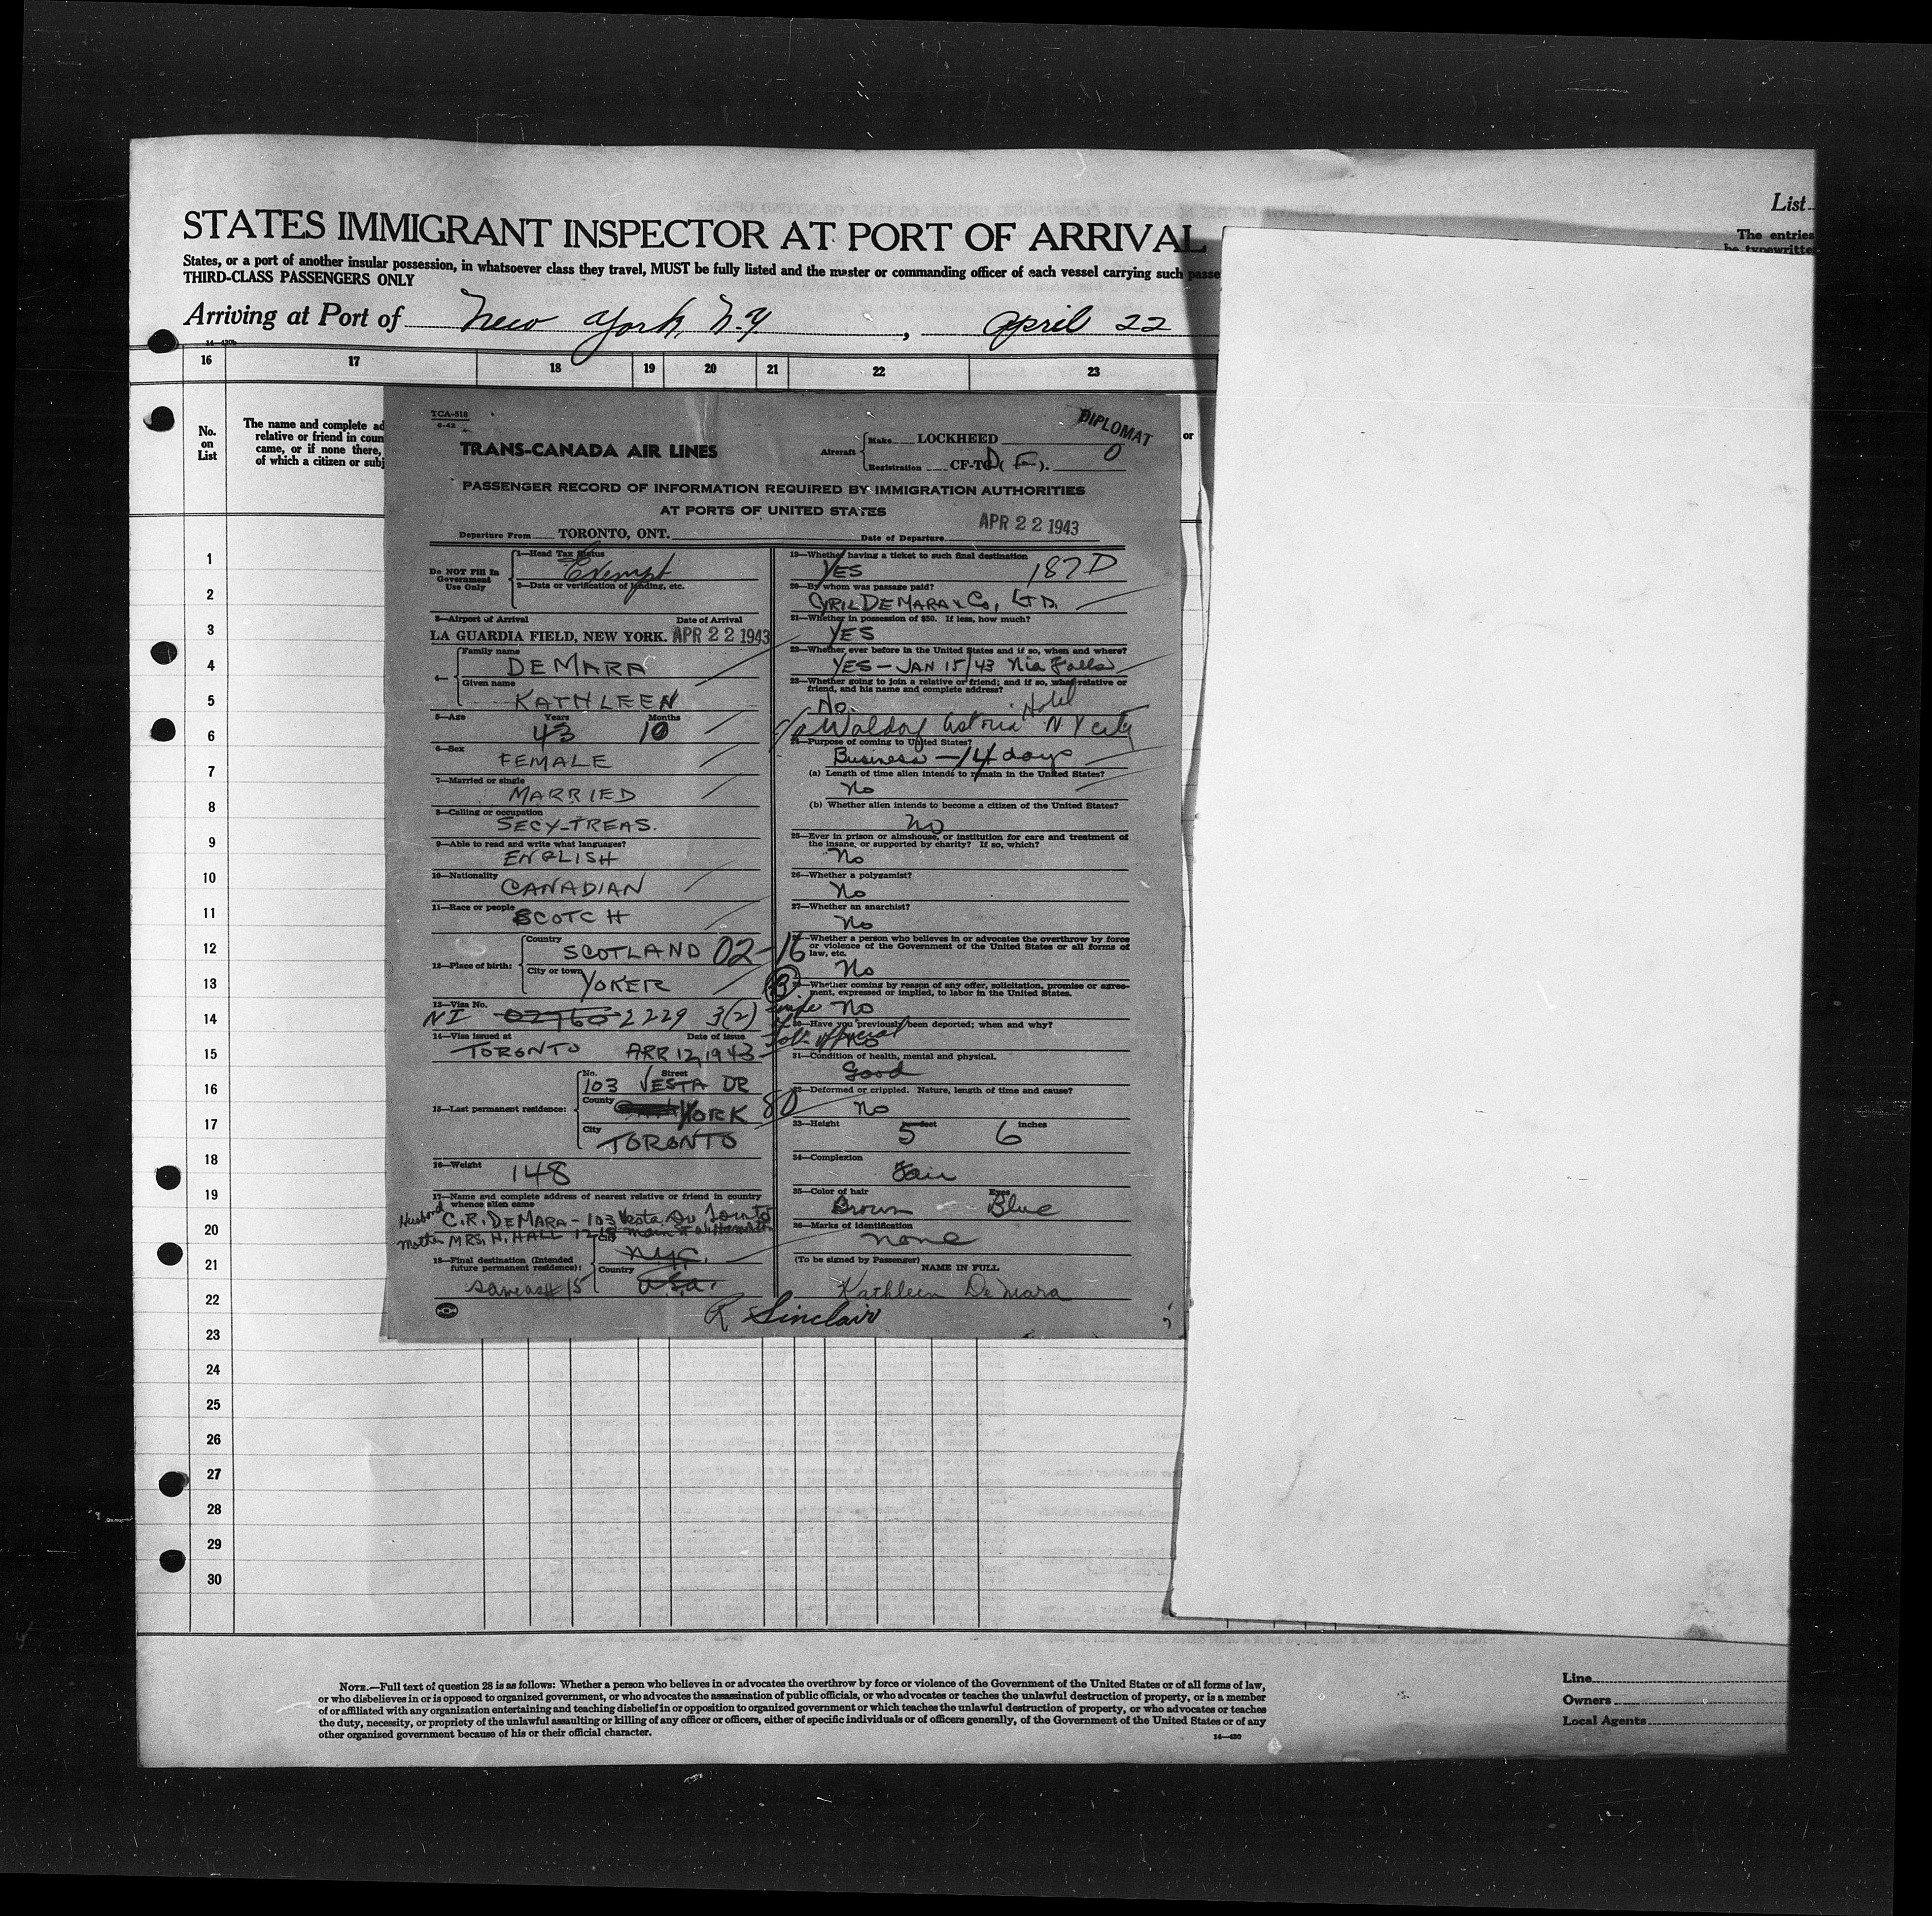 List
The entries
be typewritten
STATES IMMIGRANT INSPECTOR AT PORT OF ARRIVAL
States, or a port of another insular possession, in whatsoever class they travel, MUST be fully listed and the master or commanding officer of each vessel carrying such passe
THIRD-CLASS PASSENGERS ONLY
Arriving at Port of New York, N.Y , April 22
14—430b
16 17 18 19 20 21 22 23
No.
on
List
The name and complete ad
relative or friend in coun
came, or if none there,
of which a citizen or subj
or
TCA-518
6-42
DIPLOMAT
TRANS-CANADA AIR LINES
Aircraft Make LOCKHEED 0
Registration CF-TC
PASSENGER RECORD OF INFORMATION REQUIRED BY IMMIGRATION AUTHORITIES
AT PORTS OF UNITED STATES
Departure From TORONTO, ONT. Date of Departure APR 22 1943
Do NOT Fill In
Government
Use Only
1—Head Tax Status
Exempt
2—Data or verification of landing, etc.
3—Airport of Arrival Date of Arrival
LA GUARDIA FIELD, NEW YORK. APR 22 1943
4— Family name
DEMARA
Given name
KATHLEEN
5—Age Years Months
43 10
6—Sex
FEMALE
7—Married or single
MARRIED
8—Calling or occupation
SECY-TREAS.
9—Able to read and write what languages?
ENGLISH
10—Nationality
CANADIAN
11—Race or people
SCOTCH
12—Place of birth: Country
SCOTLAND 02-16
City or town
YOKER
13—Visa No.
NI 02760 2229 3(2)
14—Visa issued at Date of issue
TORONTO APR 12, 1943
15—Last permanent residence: No. Street
103 VESTA DR
County
YORK 80
City
TORONTO
16—Weight
148
17—Name and complete address of nearest relative or friend in country
whence alien came
Husband C.R. DEMARA - 103 Vesta Dr Toronto
Mother MRS. H. HALL 1218 Main St W. Hamilton
18—Final destination (Intended
future permanent residence):
City
NYC.
Country
U.S.A.
same as # 15
19—Whether having a ticket to such final destination
YES 187D
20—By whom was passage paid?
CYRIL DEMARA & Co, LTD.
21—Whether in possession of $50. If less, how much?
YES
22—Whether ever before in the United States and if so, when and where?
YES - JAN 15/43 Nia Falls
23—Whether going to join a relative or friend; and if so, what relative or
friend, and his name and complete address?
No.
c/o Waldorf Astoria Hotel N Y City
24—Purpose of coming to United States?
Business - 14 days
(a) Length of time alien intends to remain in the United States?
No
(b) Whether alien intends to become a citizen of the United States?
No
25—Ever in prison or almshouse, or institution for care and treatment of
the insane, or supported by charity? If so, which?
No
26—Whether a polygamist?
No
27—Whether an anarchist?
No
28—Whether a person who believes in or advocates the overthrow by force
or violence of the Government of the United States or all forms of
law, etc.
No
29—Whether coming by reason of any offer, solicitation, promise or agree-
ment, expressed or implied, to labor in the United States.
No
(3) wife
30—Have you previously been deported; when and why?
official
31—Condition of health, mental and physical.
Good
32—Deformed or crippled. Nature, length of time and cause?
No
33—Height feet inches
5 6
34—Complexion
Fair
35—Color of hair Eyes
Brown Blue
36—Marks of identification
none
(To be signed by Passenger)
NAME IN FULL
Kathleen DeMara
R Sinclair
1
2
3
4
5
6
7
8
9
10
11
12
13
14
15
16
17
18
19
20
21
22
23
24
25
26
27
28
29
30
NOTE.—Full text of question 28 is as follows: Whether a person who believes in or advocates the overthrow by force or violence of the Government of the United States or of all forms of law,
or who disbelieves in or is opposed to organized government, or who advocates the assassination of public officials, or who advocates or teaches the unlawful destruction of property, or is a member
of or affiliated with any organization entertaining and teaching disbelief in or opposition to organized government or which teaches the unlawful destruction of property, or who advocates or teaches
the duty, necessity, or propriety of the unlawful assaulting or killing of any officer or officers, either of specific individuals or of officers generally, of the Government of the United States or of any
other organized government because of his or their official character.
14—430
Line
Owners
Local Agents